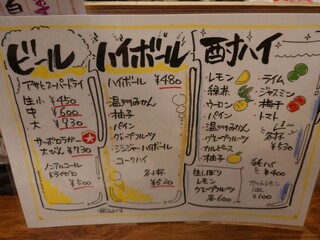 ビール
アサヒスーパードライ
生小 ¥450
中 ¥600
大 ¥930
サッポロラガー
大びん ¥730
ノンアルコール
ドライゼロ
¥500
ハイボール
ハイボール ¥480
温州みかん
柚子
パイン
グレープフルーツ
ジンジャーハイボール
コークハイ
各1杯
¥520
酎ハイ
・レモン ・ライム
・緑茶 ・ジャスミン
・ウーロン ・梅干
・パイン ・トマト
・温州みかん
・グレープフルーツ
・カルピス
・柚子
各1杯
¥530
・生しぼり
レモン
グレープフルーツ
各600
¥400
カットレモン
¥100